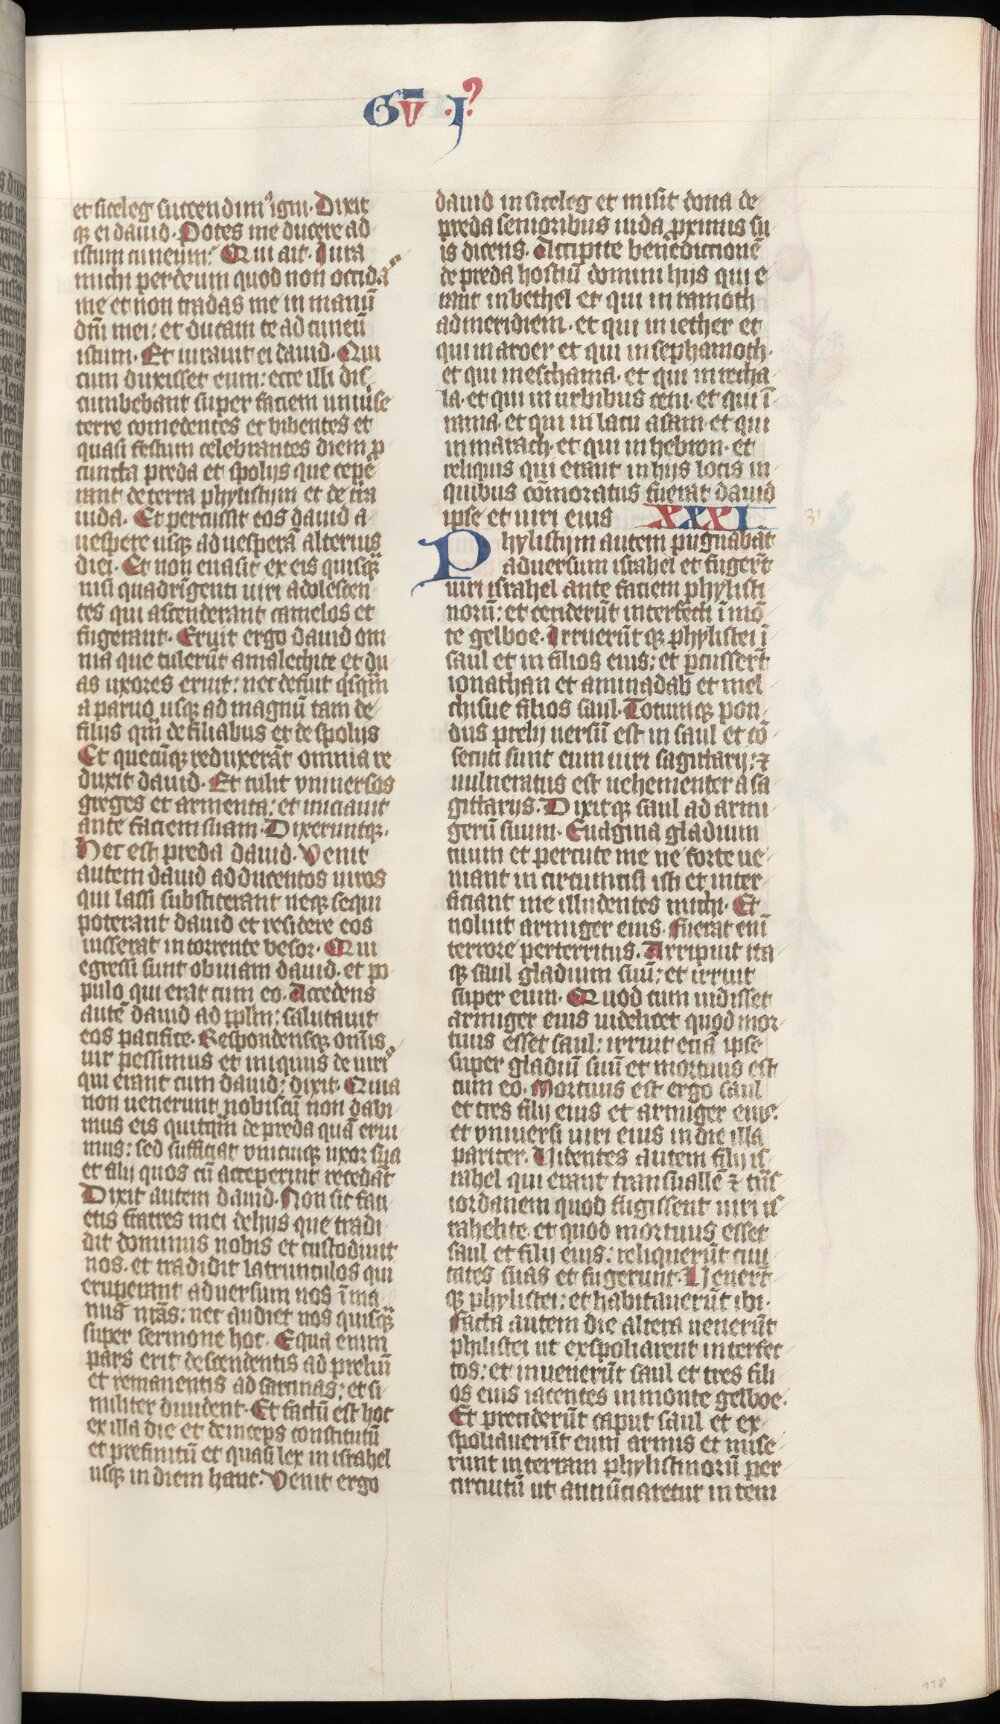 Gū .I?
et siceleg succendim⁹ igni. Dixit
qꝫ ei dauid. Potes me ducere ad
istum cuneum? Qui ait. Iura
michi per deum quod non occidaˢ
me et non tradas me in manū
dn̄i mei: et ducam te ad cuneū
istum. Et iurauit ei dauid. Qui
cum duxisset eum: ecce illi dis
cumbebant super faciem uniuerse
terre comedentes et bibentes et
quasi festum celebrantes diem ꝓ
cuncta preda et spolijs que cepe
rant de terra phylistijm et de t͛ra
iuda. Et percussit eos dauid a
uespere usqꝫ ad uesperā alterius
diei. Et non euasit ex eis quisqꝫ
nisi quadringenti uiri adolescen
tes qui ascenderant camelos et
fugerant. Eruit ergo dauid om
nia que tulerūt amalechite et du
as uxores eruit: nec defuit q̄sqm̄
a paruo usqꝫ ad magnū tam de
filijs qm̄ de filiabus et de spolijs
Et quecūqꝫ reduxerāt omnia re
duxit dauid. Et tulit vniuersos
greges et armenta: et minauit
ante faciem suam. Dixeruntqꝫ.
Hec est preda dauid. Venit
autem dauid ad ducentos uiros
qui lassi substiterant neqꝫ sequi
poterant dauid et residere eos
iusserat in torrente besor. Qui
egressi sunt obuiam dauid. et po
pulo qui erat cum eo. Accedens
autē dauid ad ipl̄m: salutauit
eos pacifice. Respondensqꝫ om̄is
uir pessimus et iniquus de uiriˢ
qui erant cum dauid: dixit. Quia
non uenerunt nobiscū non dabi
mus eis quitqm̄ de preda quā erui
mus: sed sufficiat vnicuiqꝫ uxor sua
et filij quos cū acceperint recedāt
Dixit autem dauid. Non sic faci
etis fratres mei de hijs que tradi
dit dominus nobis et custodiuit
nos. et tradidit latrunculos qui
eruperant aduersum nos ī ma
nus nr̄as: nec audiet nos quisqꝫ
super sermone hoc. Equa enim
pars erit descendentis ad preliū
et remanentis ad sarcinas: et si
militer diuident. Et factū est hoc
ex illa die et deinceps constitutū
et prefinitū et quasi lex in israhel
usqꝫ in diem hanc. Venit ergo
dauid in siceleg et misit dona de
preda senioribus iuda ꝓximis su
is dicens. Accipite benedictionē
de preda hostiū domini hijs qui e
rant in bethel et qui in ramoth
ad meridiem. et qui in iether et
qui in aroer et qui in sephamoth.
et qui in eschama. et qui in recha
la. et qui in urbibus ceni. et qui ī
rama. et qui in lacu asam et qui
in marach. et qui in hebron. et
reliquis qui erant in hijs locis in
quibus cōmoratus fuerat dauid
ipse et uiri eius XXXI.
31
Phylistijm autem pugnabāt
aduersum israhel et fugerūt
uiri israhel ante faciem phylisti
norū: et ceciderūt interfecti ī mō
te gelboe. Irruerūt qꝫ phylistei ī
saul et in filios eius: et ꝑcusserūt
ionathan et aminadab et mel
chisue filios saul. Totumqꝫ pon
dus prelij versū est in saul et cō
secuti sunt eum uiri sagittarij: ⁊
uulneratus est uehementer a sa
gittarijs. Dixitqꝫ saul ad armi
gerū suum. Euagina gladium
tuum et percute me ne forte ue
niant in circumcisi isti et inter
ficiant me illudentes michi. Et
noluit armiger eius. Fuerat enī
terrore perterritus. Arripuit ita
qꝫ saul gladium suū: et irruit
super eum. Quod cum uidisset
armiger eius uidelicet quod mor
tuus esset saul: irruit eciā ipse
super gladiū suū et mortuus est
cum eo. Mortuus est ergo saul
et tres filij eius et armiger eius:
et vniuersi uiri eius in die illa
pariter. Videntes autem filij is
rahel qui erant trans uallē ⁊ trās
iordanem quod fugissent uiri is
rahelite et quod mortuus esset
saul et filij eius: reliquerūt ciui
tates suas et fugerunt. Venerūt
qꝫ phylistei: et habitauerūt ibi.
Facta autem die altera uenerūt
philistei ut exspoliarent interfec
tos: et inuenerūt saul et tres fili
os eius iacentes in monte gelboe.
Et prenderūt caput saul et ex
spoliauerūt eum armis et mise
runt in terram phylistinorū per
circuitū ut annūciaretur in tem
118